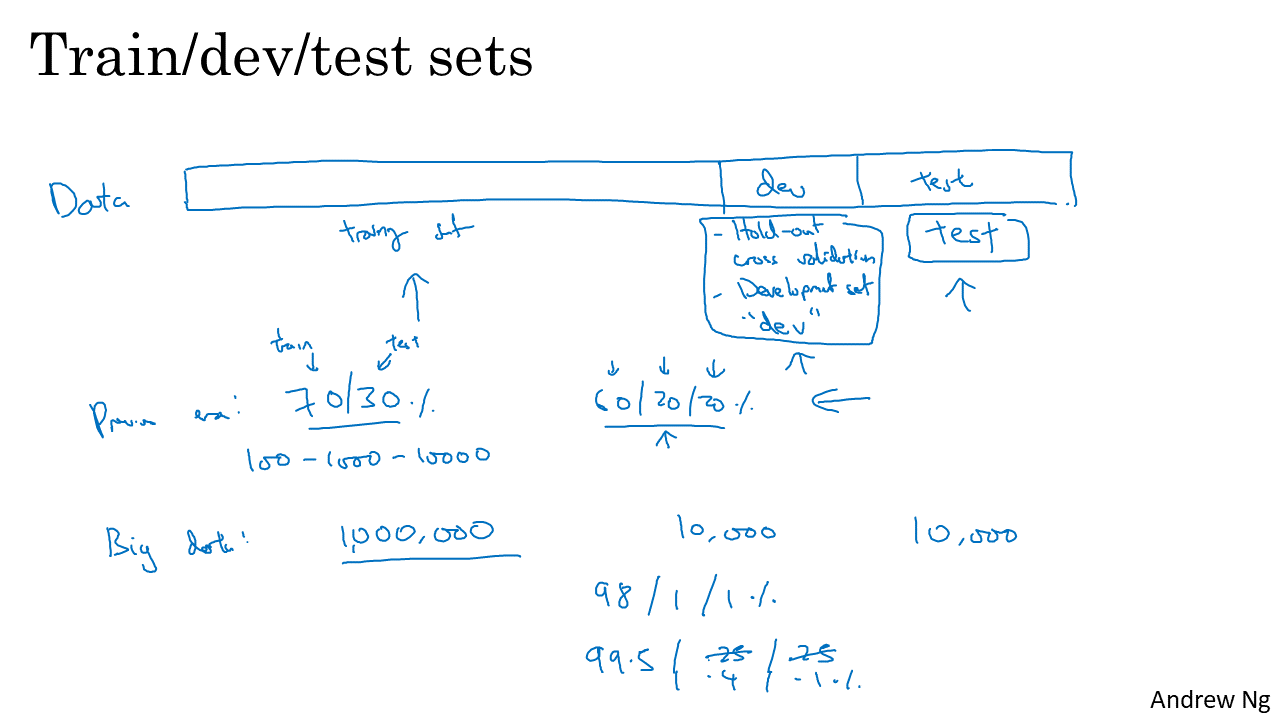 Train/dev/test sets
Data
dev
test
training set
- Hold-out
cross validation
- Development set
"dev"
test
train
test
Previous era:
70/30 %
60/20/20 %
100 - 1000 - 10000
Big data:
1,000,000
10,000
10,000
98 / 1 / 1 %
99.5 / .25 / .25
.4 / .1 %
Andrew Ng